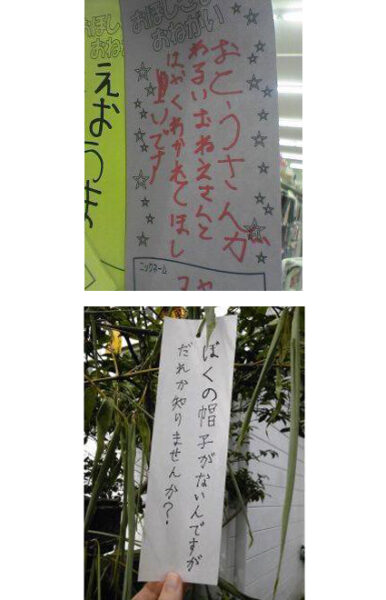 おねがい
おとうさんが
わるいおねえさんと
はやくわかれてほし
いです
ニックネーム
ぼくの帽子がないんですが
だれか知りませんか？